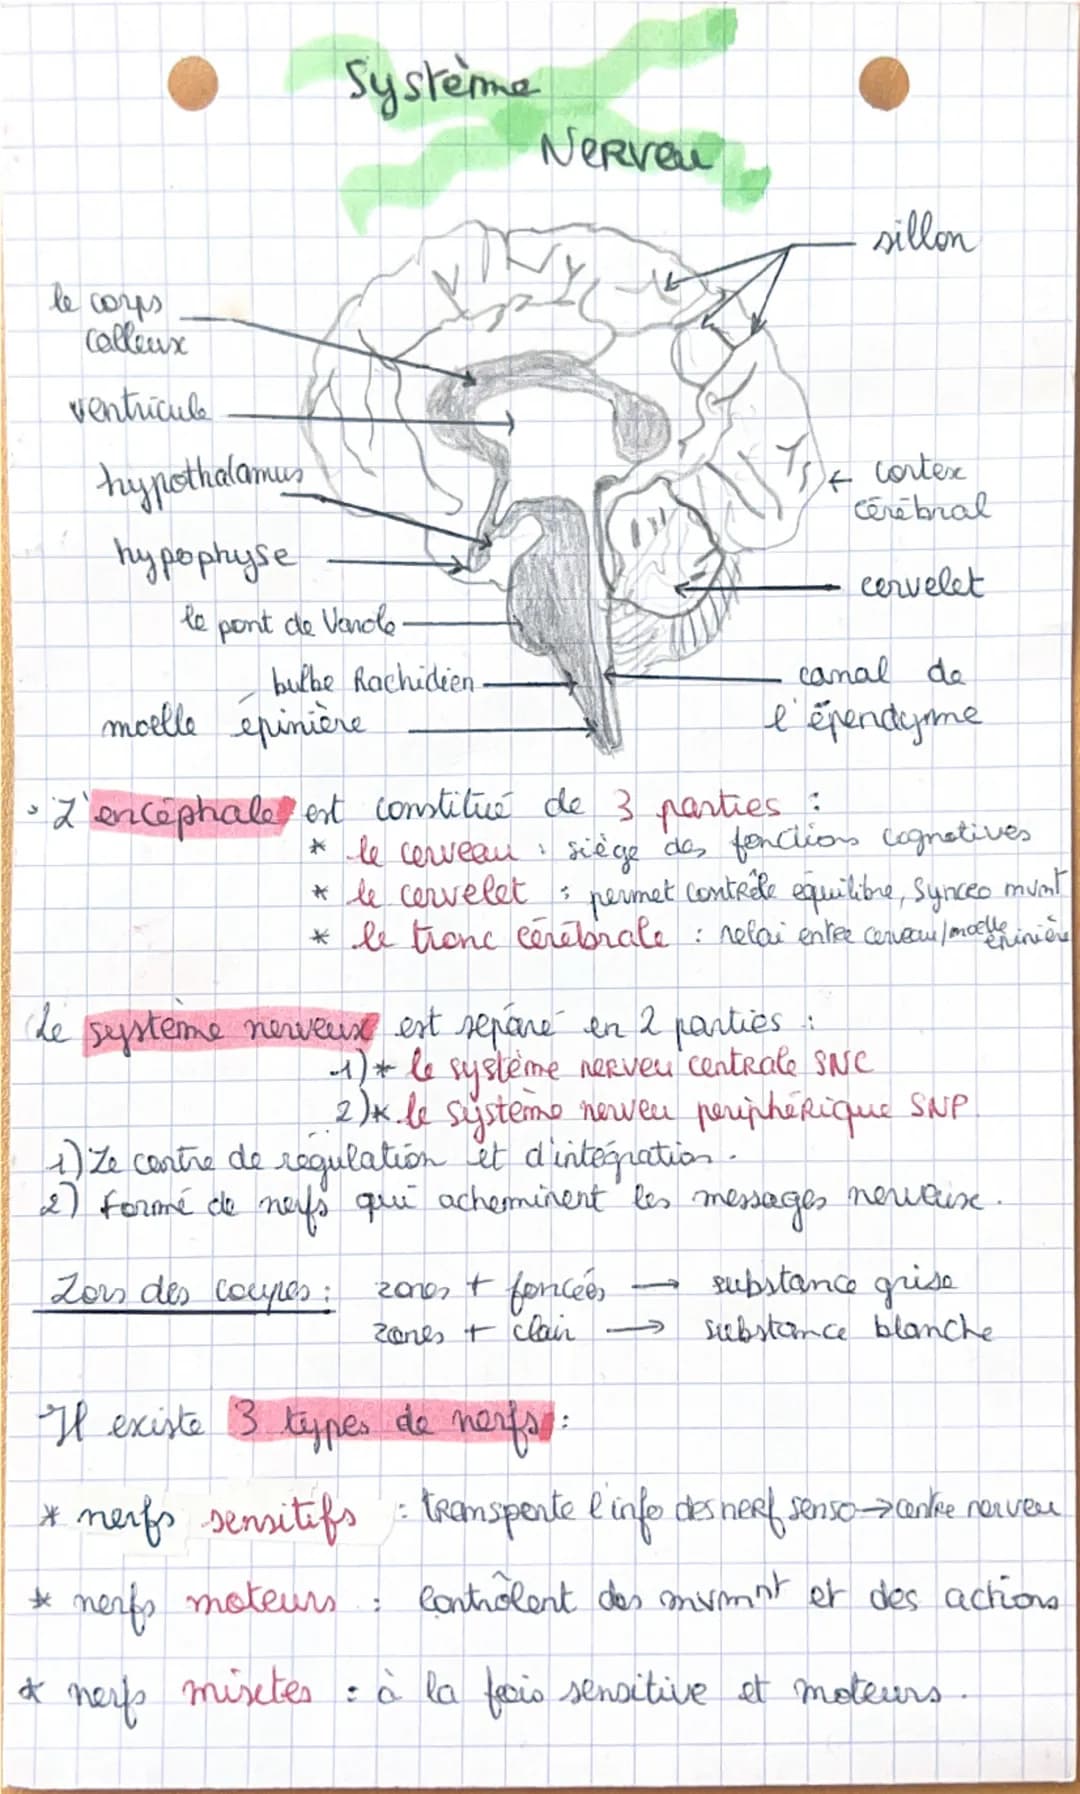 Système
Nerveu
sillon
le corps
calleux
ventricule
hypothalamus
cortex
cérébral
hypophyse
cervelet
le pont de Varole
bulbe Rachidien
canal de
l'épendyme
moelle épinière
L'encéphale est constitué de 3 parties :
* le cerveau : siège des fonctions cognatives
* le cervelet : permet contrôle équilibre, Synceo mvmt
* le tronc cérébrale : relai entre cerveau/moelle épinière
Le système nerveux est séparé en 2 parties :
1)* le système nerveu centrale SNC
2)* le système nerveu periphérique SNP.
1) Le centre de régulation et d'intégration.
2) formé de nerfs qui acheminent les messages nerveux.
Lors des coupes : zones + foncées → substance grise
zones + clair → substance blanche
Il existe 3 types de nerfs :
* nerfs sensitifs : transporte l'info des nerf senso → centre nerveu
* nerfs moteurs : Contrôlent des mvmnt et des actions
* nerfs mixtes : à la fois sensitive et moteurs.